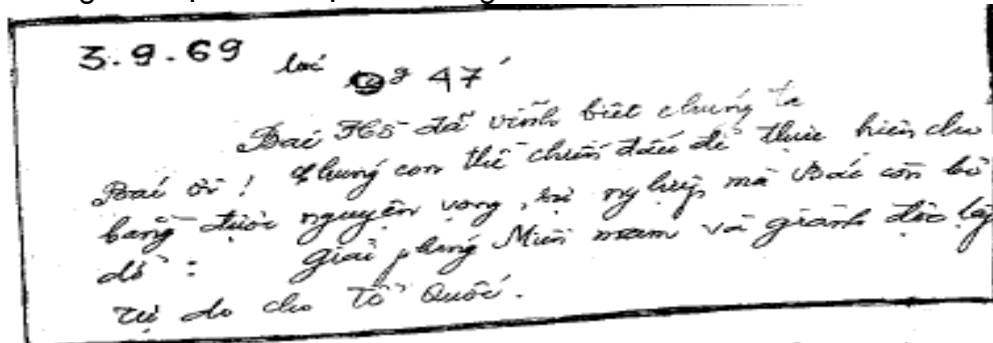 3.9.69 lúc 9g 47'
Bác Hồ đã vĩnh biệt chúng ta
Bác ơi! Chúng con thề chiến đấu để thực hiện cho
bằng được nguyện vọng, sự nghiệp mà Bác còn bỏ
dở: Giải phóng Miền nam và giành độc lập
tự do cho Tổ Quốc.